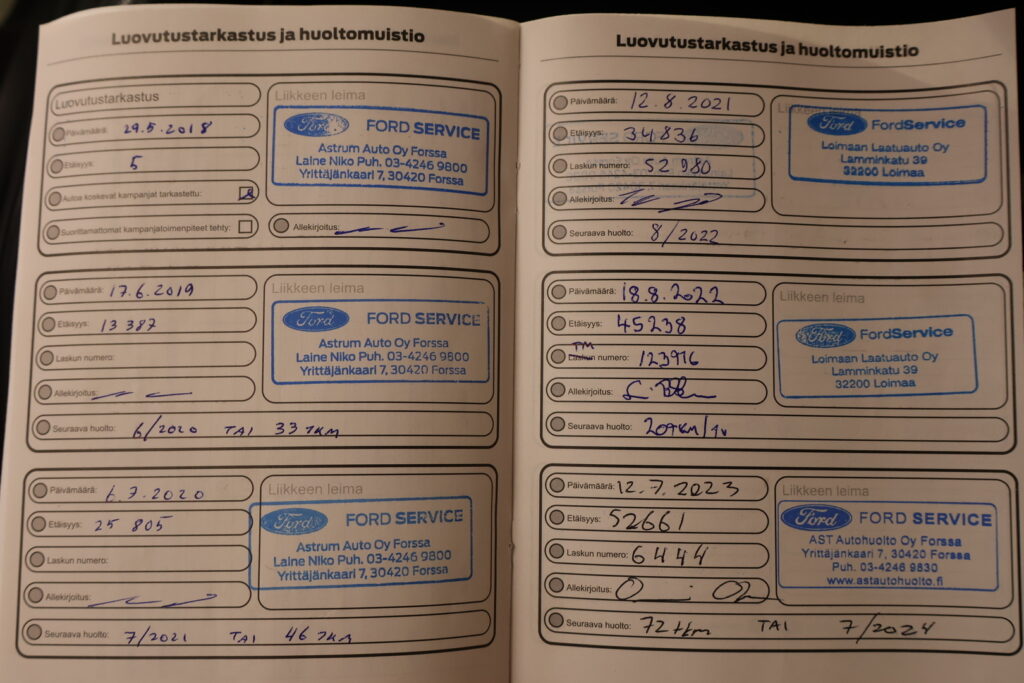 Luovutustarkastus ja huoltomuistio
Luovutustarkastus
Päivämäärä: 29.5.2018
Etäisyys: 5
Autoa koskevat kampanjat tarkastettu:
Suorittamattomat kampanjatoimenpiteet tehty:
Liikkeen leima
Ford FORD SERVICE
Astrum Auto Oy Forssa
Laine Niko Puh. 03-4246 9800
Yrittäjänkaari 7, 30420 Forssa
Allekirjoitus:
Päivämäärä: 17.6.2019
Etäisyys: 13 387
Laskun numero:
Allekirjoitus:
Liikkeen leima
Ford FORD SERVICE
Astrum Auto Oy Forssa
Laine Niko Puh. 03-4246 9800
Yrittäjänkaari 7, 30420 Forssa
Seuraava huolto: 6/2020 TAI 33 TKM
Päivämäärä: 6.7.2020
Etäisyys: 25 805
Laskun numero:
Allekirjoitus:
Liikkeen leima
Ford FORD SERVICE
Astrum Auto Oy Forssa
Laine Niko Puh. 03-4246 9800
Yrittäjänkaari 7, 30420 Forssa
Seuraava huolto: 7/2021 TAI 46 TKM
Luovutustarkastus ja huoltomuistio
Päivämäärä: 12.8.2021
Etäisyys: 34836
Laskun numero: 52980
Allekirjoitus:
Liikkeen leima
Ford FordService
Loimaan Laatuauto Oy
Lamminkatu 39
32200 Loimaa
Seuraava huolto: 8/2022
Päivämäärä: 18.8.2022
Etäisyys: 45238
TM
Laskun numero: 123916
Allekirjoitus:
Liikkeen leima
Ford FordService
Loimaan Laatuauto Oy
Lamminkatu 39
32200 Loimaa
Seuraava huolto: 20TKM/1v
Päivämäärä: 12.7.2023
Etäisyys: 52661
Laskun numero: 6444
Allekirjoitus:
Liikkeen leima
Ford FORD SERVICE
AST Autohuolto Oy Forssa
Yrittäjänkaari 7, 30420 Forssa
Puh. 03-4246 9830
www.astautohuolto.fi
Seuraava huolto: 72 tkm TAI 7/2024